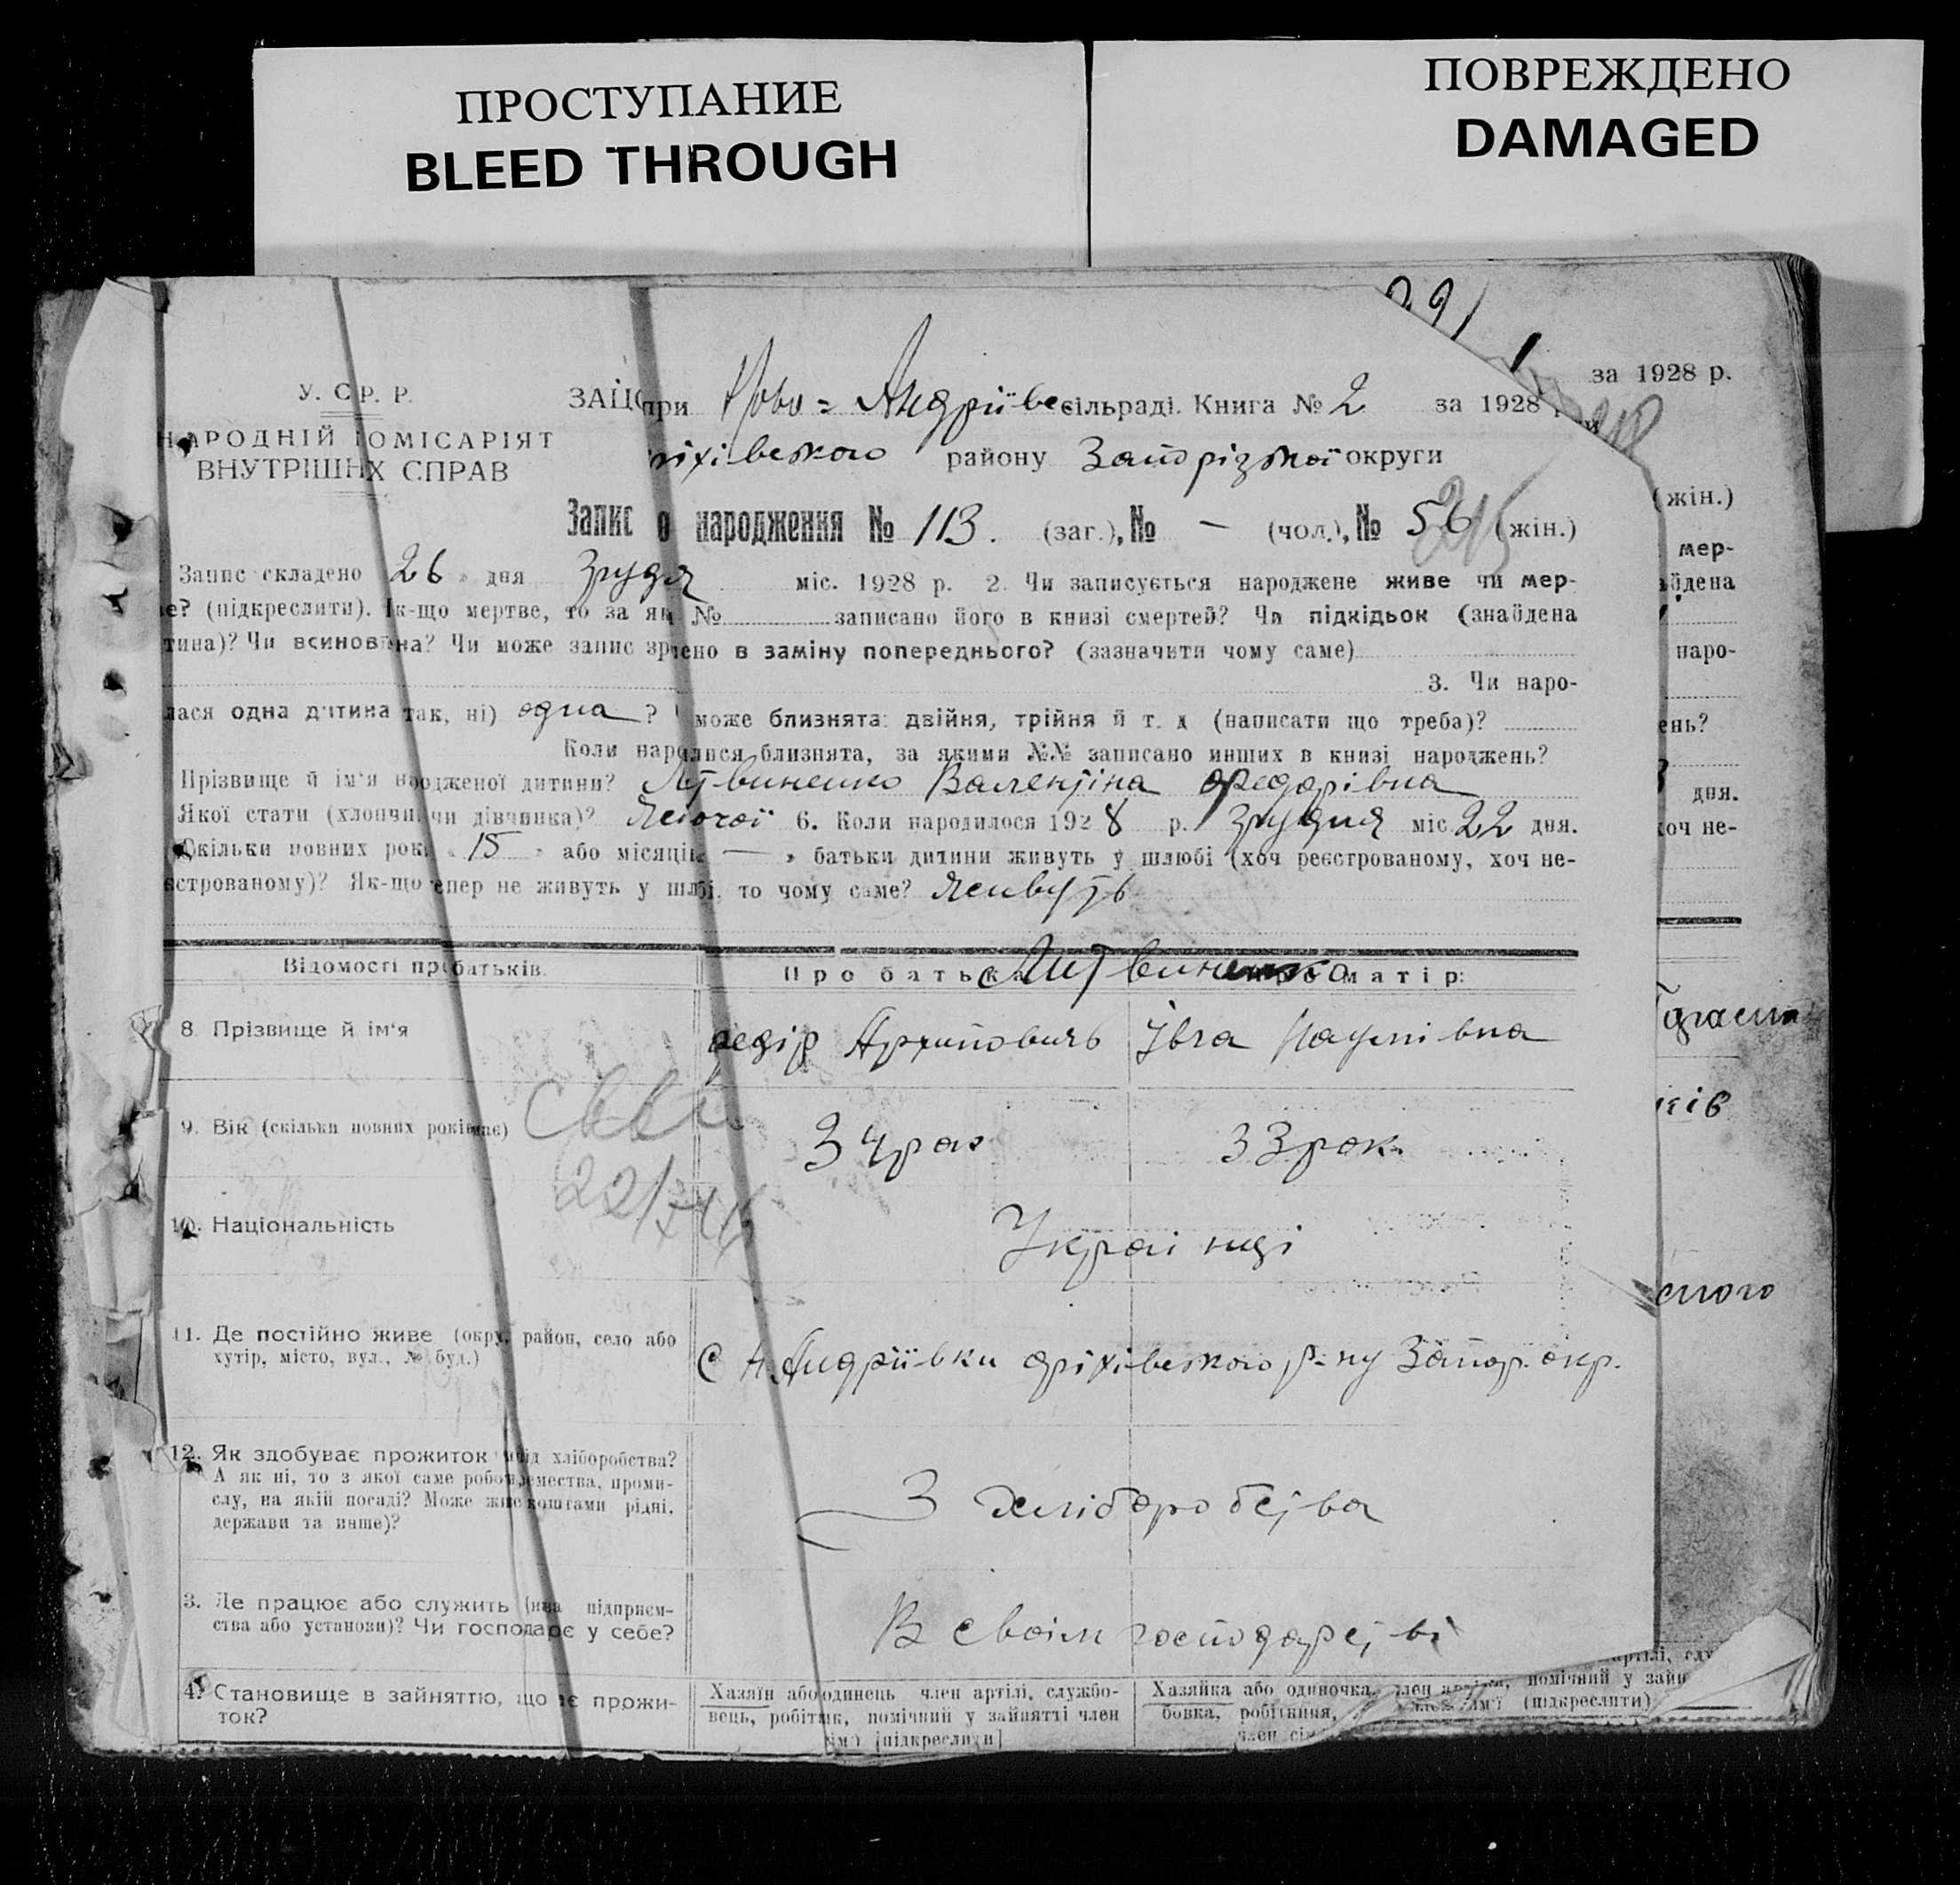 ПРОСТУПАНИЕ
BLEED THROUGH
ПОВРЕЖДЕНО
DAMAGED
за 1928 р.
У. С Р. Р.
НАРОДНІЙ КОМІСАРІЯТ
ВНУТРІШНІХ СПРАВ
при Ново = Андріївс сільраді. Книга № 2 за 1928
ріхівського району Запорізької округи
Запис о народження № 113. (заг.), № — (чол.), № 56 (жін.)
(жін.)
Запис складено 26 дня грудя міс. 1928 р. 2. Чи записується народжене живе чи мер-
мер-
е? (підкреслити). Як-що мертве, то за як № записано його в книзі смертей? Чи підкідьок (знайдена
йдена
тина)? Чи всиновена? Чи може запис зрено в заміну попереднього? (зазначити чому саме)
наро-
3. Чи наро-
лася одна дитина так, ні) одна ? може близнята: двійня, трійня й т. д (написати що треба)?
ень?
Коли народилися близнята, за якими №№ записано инших в книзі народжень?
Прізвище й ім'я народженої дитини? Литвиненко Валентіна Федорівна
дня.
Якої стати (хлопчик чи дівчинка)? Жіночої 6. Коли народилося 1928 р. грудня міс. 22 дня.
Скільки повних рокі « 15 » або місяців — » батьки дитини живуть у шлюбі (хоч реєстрованому, хоч не-
хоч не-
єстрованому)? Як-що тепер не живуть у шлюбі, то чому саме? Живуть
Відомості про батьків.
Про батька Литвиненко матір:
8. Прізвище й ім'я
Федір Архипович Івга Наумівна
9. Вік (скільки повних років має)
34 рок 33 рок.
ків
10. Національність
Українці
11. Де постійно живе (окру, район, село або
хутір, місто, вул., № буд.)
С Н. Андріївки Оріхівського р-ну Запор. окр.
12. Як здобуває прожиток від хліборобства?
А як ні, то з якої саме робо ремества, проми-
слу, на якій посаді? Може живе коштами рідні,
держави та инше)?
З хліборобства
3. Де працює або служить (на підприєм-
ства або установи)? Чи господарє у себе?
В своїм господарстві
4. Становище в зайняттю, що є прожи-
ток?
Хазяїн або одинець член артілі, службо-
вець, робітник, помічний у зайнятті член
ім'ї [підкреслити]
Хазяйка або одиночка, член артілі,
бовка, робітниця,
помічний у зайн
(підкреслити)